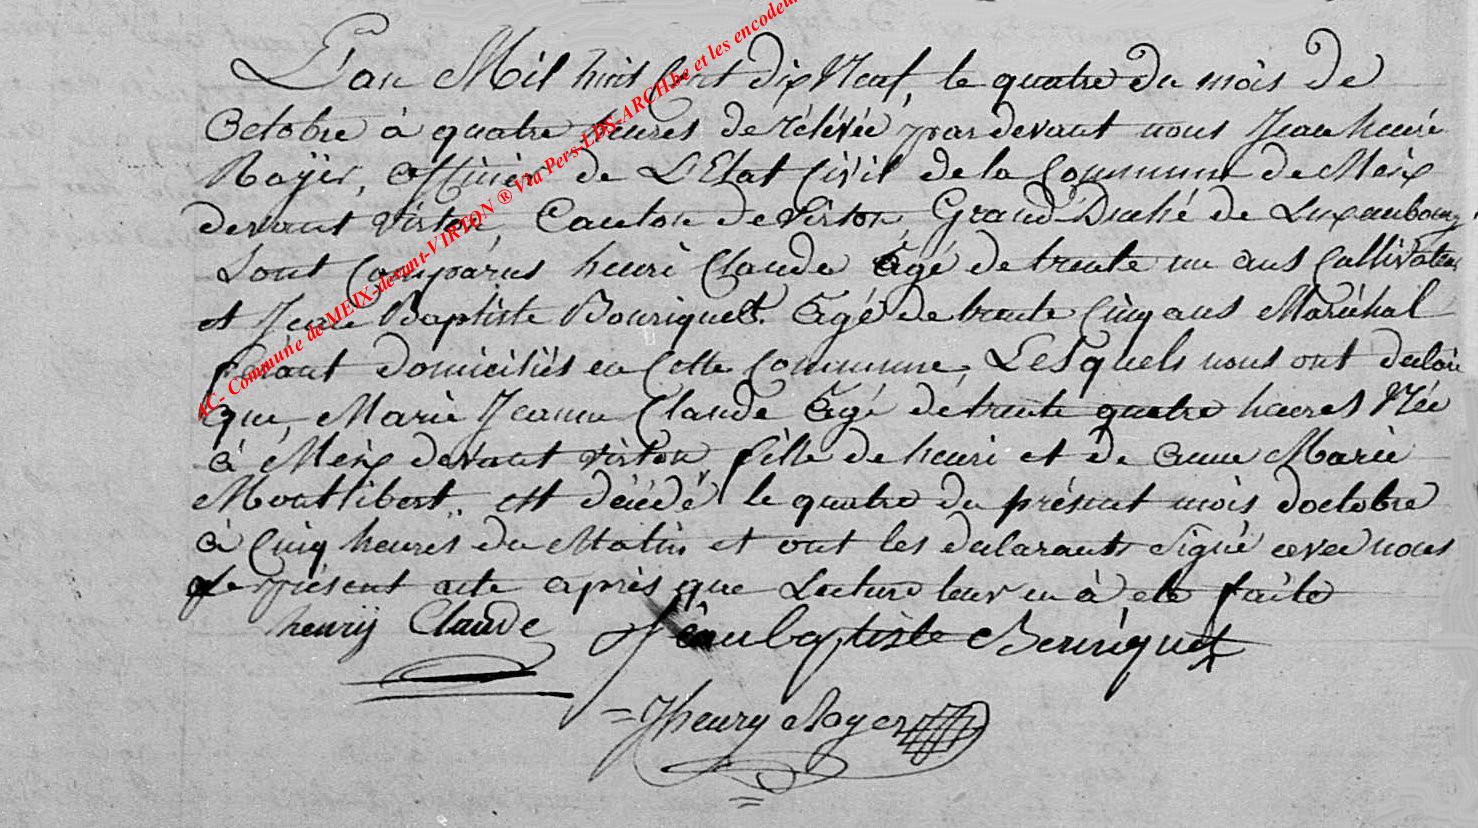 L'an Mil huit Cent dix Neuf, le quatre du mois de
Octobre à quatre heures de rélévée pardevant nous Jean henri
Royér, officier de L'Etat Civil de la Commune de Meix
devant virton, Canton de Virton, Grand-Duché de Luxembourg,
Sont Comparus henri Claude Agé de trente un ans Cultivateur
et Jean Baptiste Bouriquet Agé de trente Cinq ans Maréchal
Etant domiciliés en Cette Commune, Lesquels nous ont déclaré
que, Marie Jeanne Claude Agé de trente quatre heures Née
à Meix devant virton fille de henri et de anne Marie
Montlibert.. est décédé le quatre du présent mois doctobre
à Cinq heures du Matin et ont les declarants Signé avec nous
le présent acte après que Lecture leur en à été faite
henrij Claude Jean baptiste Beuriquet
Jhenry Royer
AC- Commune de MEIX-devant-VIRTON ® Via Pers-LDS-ARCH.be et les encodeu